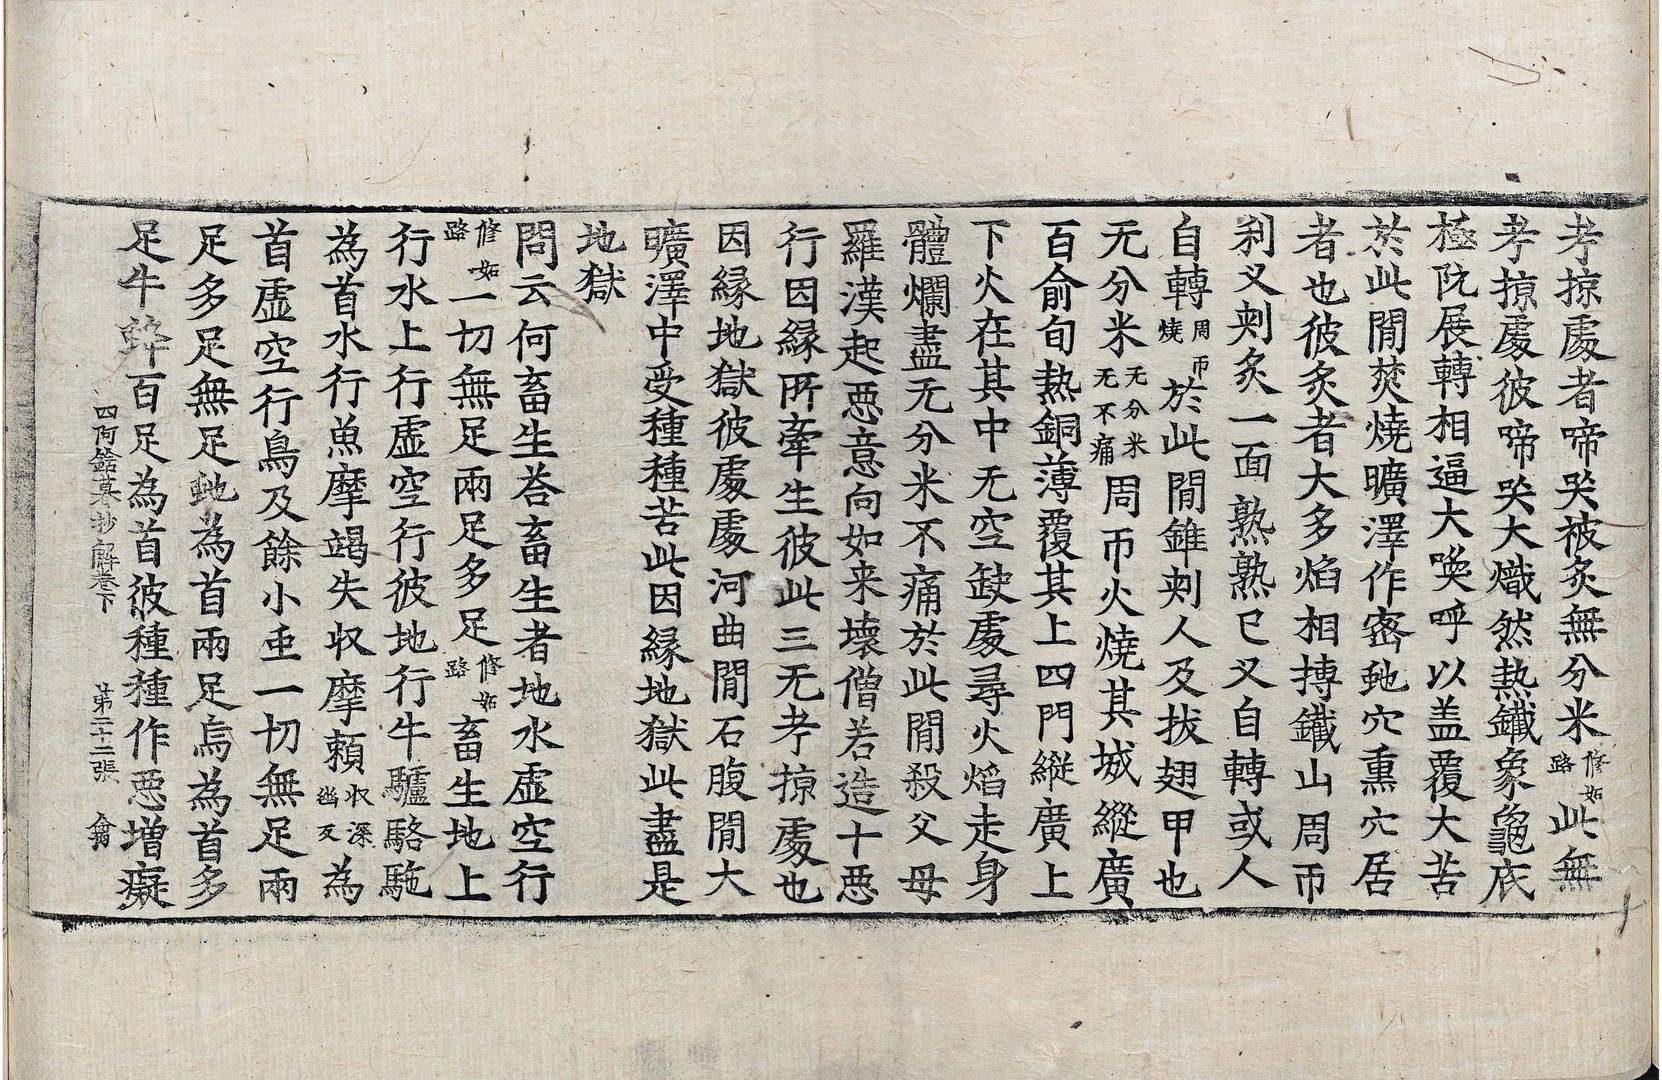 考掠處者啼哭被炙無分米修妬路此無
考掠處彼啼哭大熾然熱鐵象龜底
極阬展轉相逼大喚呼以盖覆大苦
於此閒焚燒曠澤作密虵穴熏穴居
者也彼炙者大多焰相搏鐵山周帀
剎又刾炙一面熟熟已又自轉或人
自轉周帀燒於此閒錐刾人及拔翅甲也
无分米无分米无不痛周帀火燒其城縱廣
百俞旬熱銅薄覆其上四門縱廣上
下火在其中无空缺處尋火焰走身
體爛盡无分米不痛於此閒殺父母
羅漢起惡意向如来壞僧若造十惡
行因緣所牽生彼此三无考掠處也
因緣地獄彼處處河曲閒石腹閒大
曠澤中受種種苦此因緣地獄此盡是
地獄
問云何畜生荅畜生者地水虛空行
修妬路一切無足兩足多足修妬路畜生地上
行水上行虛空行彼地行牛驢駱駞
為首水行魚摩竭失収摩賴収深幽反為
首虛空行鳥及餘小虫一切無足兩
足多足無足虵為首兩足烏為首多
足牛百足為首彼種種作惡增癡
四阿鋡暮抄解卷下 第二十二張